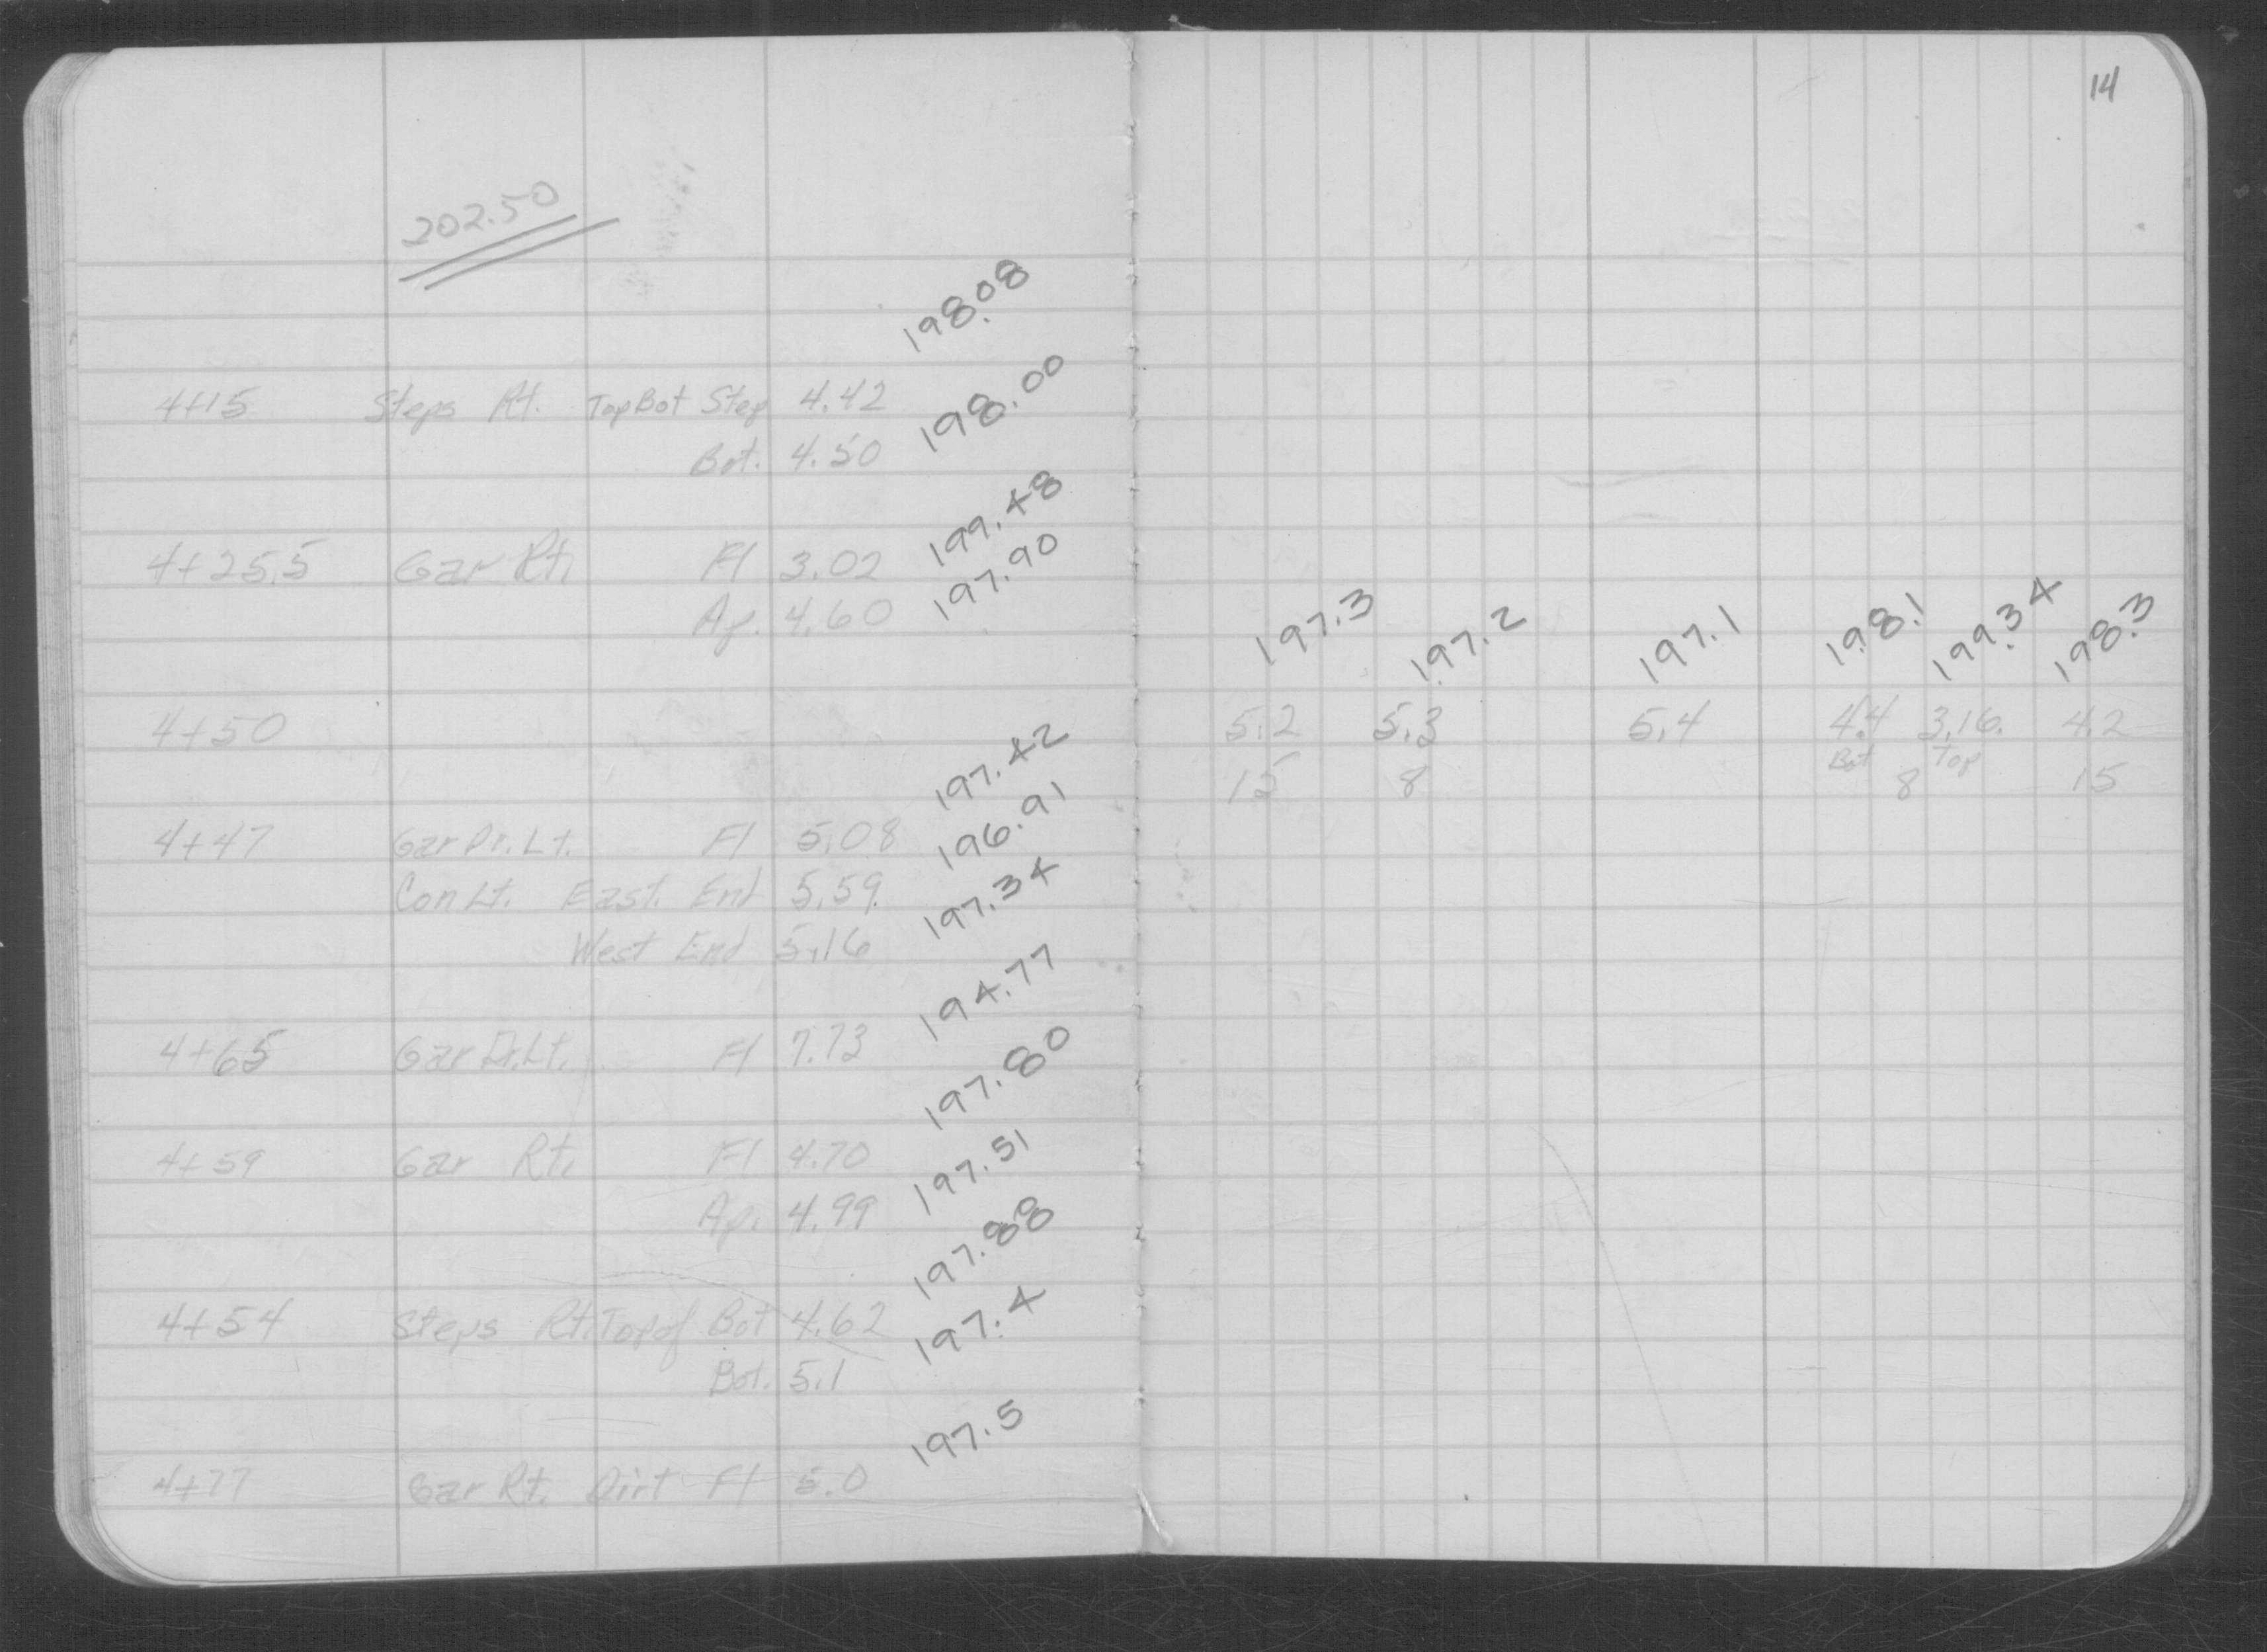 14
202.50
198.08
4+15 Steps Rt. Top Bot Step 4.42
198.00
Bot. 4.50
199.48
4+25.5 Gar Rt. Fl 3.02
197.90
Ap. 4.60
197.3 197.2 197.1 198.1 199.34 198.3
4+50 5.2 5.3 5.4 4.4 3.16 4.2
Bot Top
15 8 8 15
197.42
4+47 Gar Dr. Lt. Fl 5.08
196.91
Con Lt. East. End 5.59
197.34
West End 5.16
194.77
4+65 Gar Dr. Lt. Fl 7.73
197.80
4+59 Gar Rt. Fl 4.70
197.51
Ap. 4.99
197.88
4+54 Steps Rt. Top of Bot 4.62
197.4
Bot. 5.1
197.5
4+77 Gar Rt. Dirt Fl 5.0